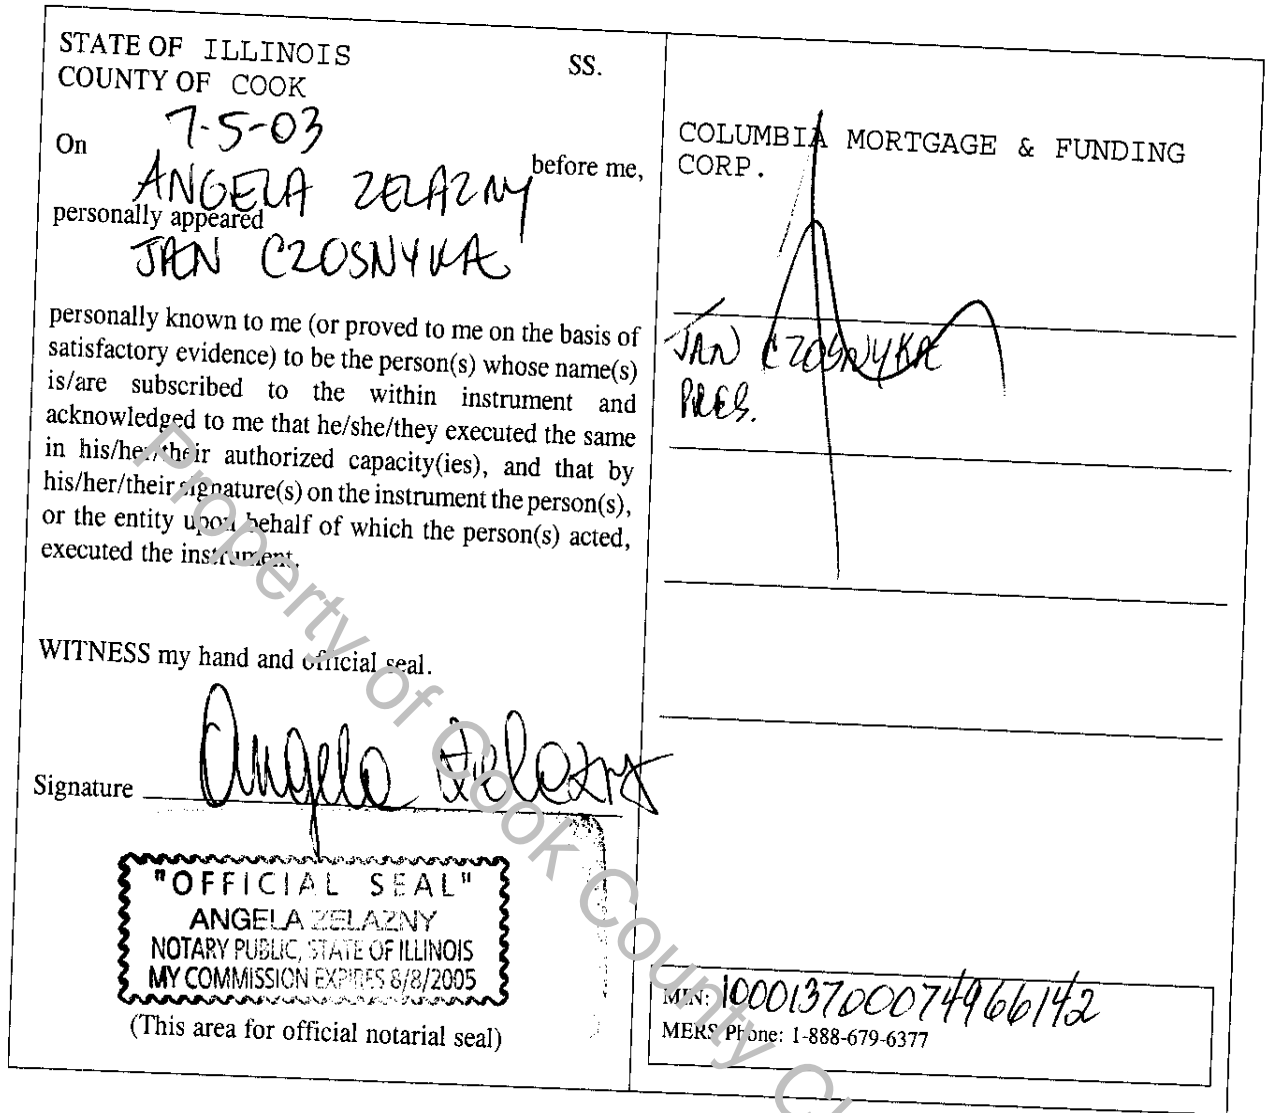 STATE OF ILLINOIS SS.
COUNTY OF COOK
On 7-5-03
ANGELA ZELAZNY before me,
personally appeared
JAN CZOSNYKA
personally known to me (or proved to me on the basis of
satisfactory evidence) to be the person(s) whose name(s)
is/are subscribed to the within instrument and
acknowledged to me that he/she/they executed the same
in his/her/their authorized capacity(ies), and that by
his/her/their signature(s) on the instrument the person(s),
or the entity upon behalf of which the person(s) acted,
executed the instrument.
WITNESS my hand and official seal.
Signature Angela Zelazny
"OFFICIAL SEAL"
ANGELA ZELAZNY
NOTARY PUBLIC, STATE OF ILLINOIS
MY COMMISSION EXPIRES 8/8/2005
(This area for official notarial seal)
COLUMBIA MORTGAGE & FUNDING
CORP.
JAN CZOSNYKA
PRES.
MIN: 100013700074966142
MERS Phone: 1-888-679-6377
Property of Cook County